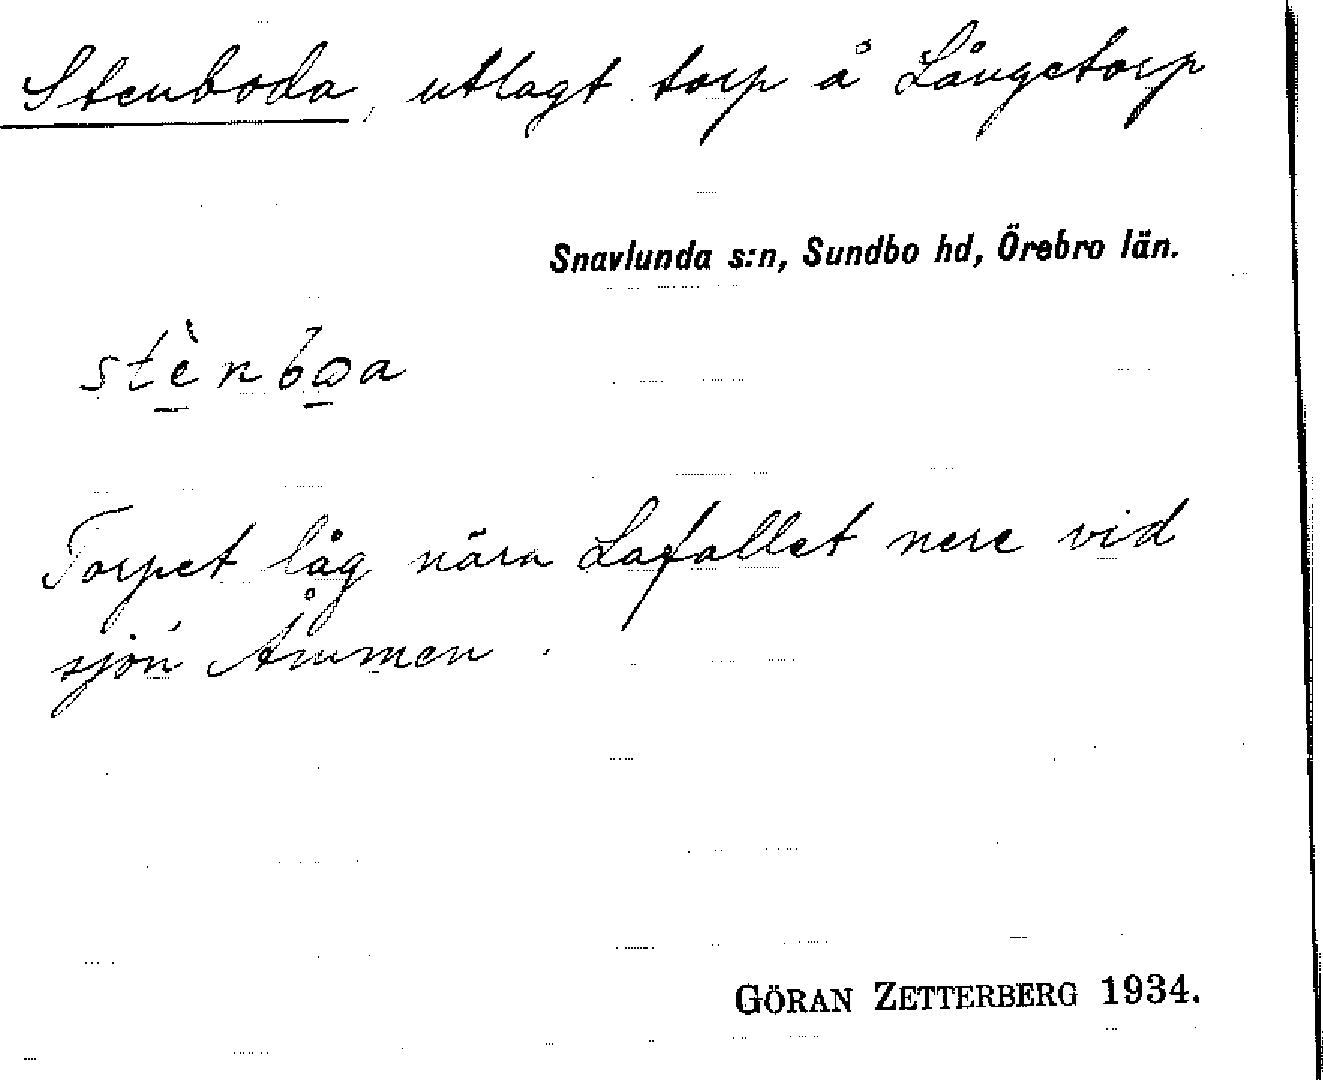 Stenboda, utlagt torp å Långetorp
Snavlunda s:n, Sundbo hd, Örebro län.
stènbωa
Torpet låg nära Lafallet nere vid
sjön Åmmen.
GÖRAN ZETTERBERG 1934.